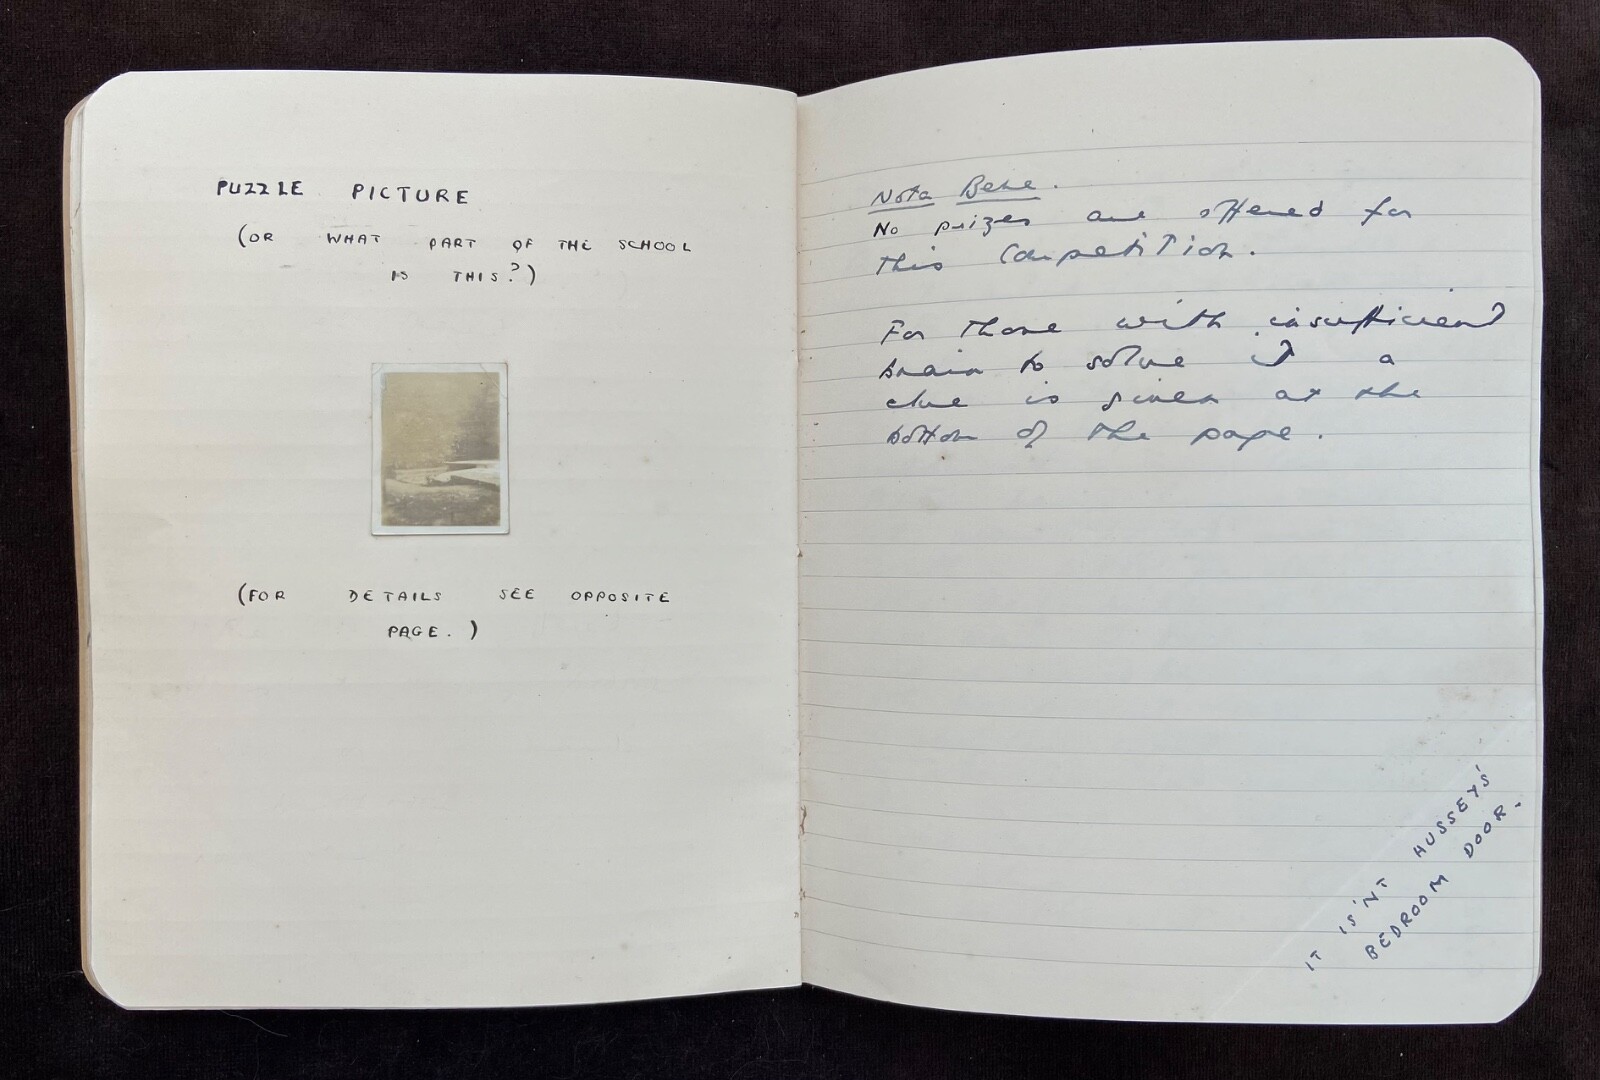 PUZZLE PICTURE
(OR WHAT PART OF THE SCHOOL
IS THIS?)
(FOR DETAILS SEE OPPOSITE
PAGE.)
Nota Bene.
No prizes are offered for
this Competition.
For those with insufficient
brain to solve it a
clue is given at the
bottom of the page.
IT IS'NT HUSSEY'S
BEDROOM DOOR.